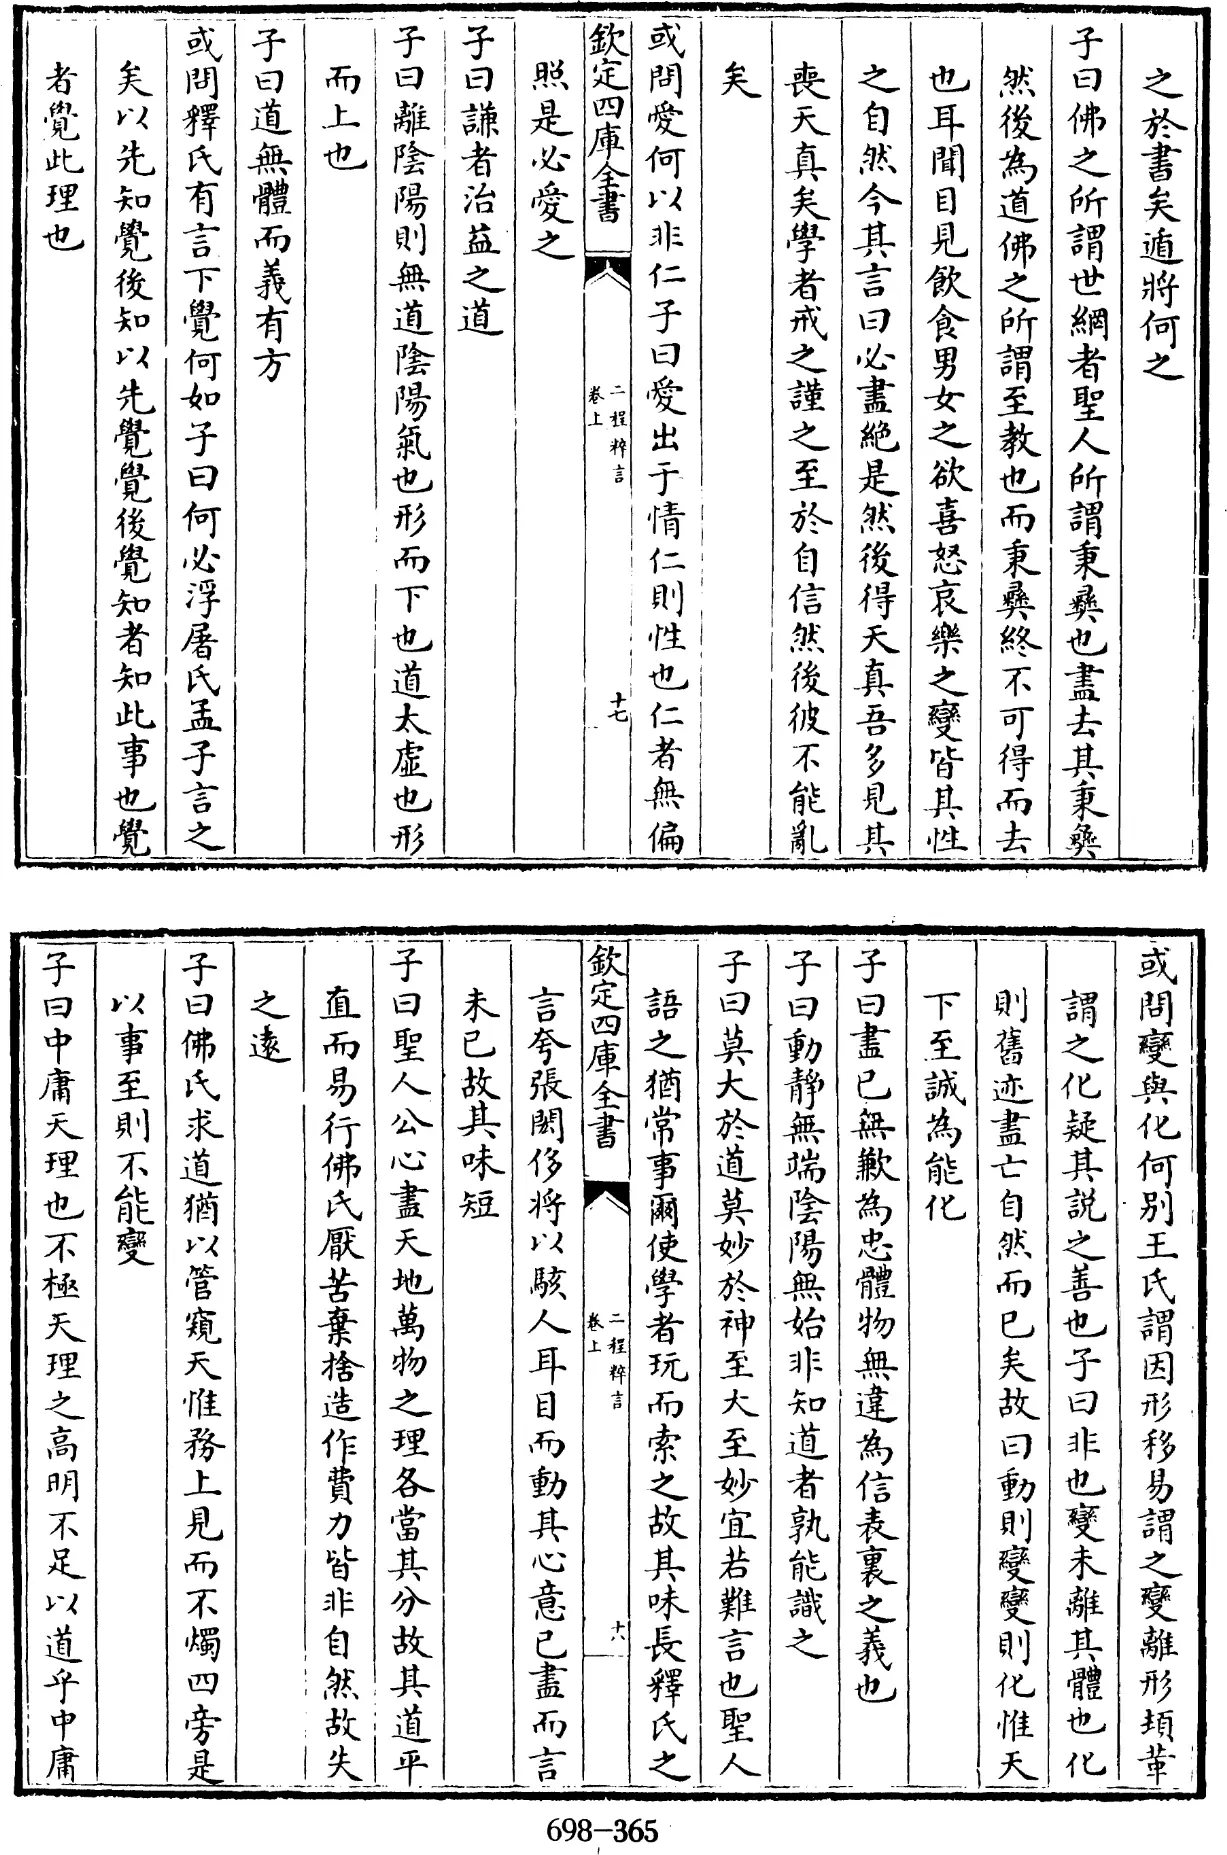 之於書矣遁將何之
子曰佛之所謂世網者聖人所謂秉彛也盡去其秉彛
然後為道佛之所謂至教也而秉彛終不可得而去
也耳聞目見飲食男女之欲喜怒哀樂之變皆其性
之自然今其言曰必盡絶是然後得天真吾多見其
喪天真矣學者戒之謹之至於自信然後彼不能亂
矣
或問愛何以非仁子曰愛出于情仁則性也仁者無偏
欽定四庫全書
二程粹言
卷上
十七
照是必愛之
子曰謙者治益之道
子曰離陰陽則無道陰陽氣也形而下也道太虛也形
而上也
子曰道無體而義有方
或問釋氏有言下覺何如子曰何必浮屠氏孟子言之
矣以先知覺後知以先覺覺後覺知者知此事也覺
者覺此理也
或問變與化何别王氏謂因形移易謂之變離形頓革
謂之化疑其説之善也子曰非也變未離其體也化
則舊迹盡亡自然而已矣故曰動則變變則化惟天
下至誠為能化
子曰盡已無歉為忠體物無違為信表裏之義也
子曰動靜無端陰陽無始非知道者孰能識之
子曰莫大於道莫妙於神至大至妙宜若難言也聖人
語之猶常事爾使學者玩而索之故其味長釋氏之
欽定四庫全書
二程粹言
卷上
十六
言夸張閎侈將以駭人耳目而動其心意已盡而言
未已故其味短
子曰聖人公心盡天地萬物之理各當其分故其道平
直而易行佛氏厭苦棄捨造作費力皆非自然故失
之遠
子曰佛氏求道猶以管窺天惟務上見而不燭四旁是
以事至則不能變
子曰中庸天理也不極天理之高明不足以道乎中庸
698-365